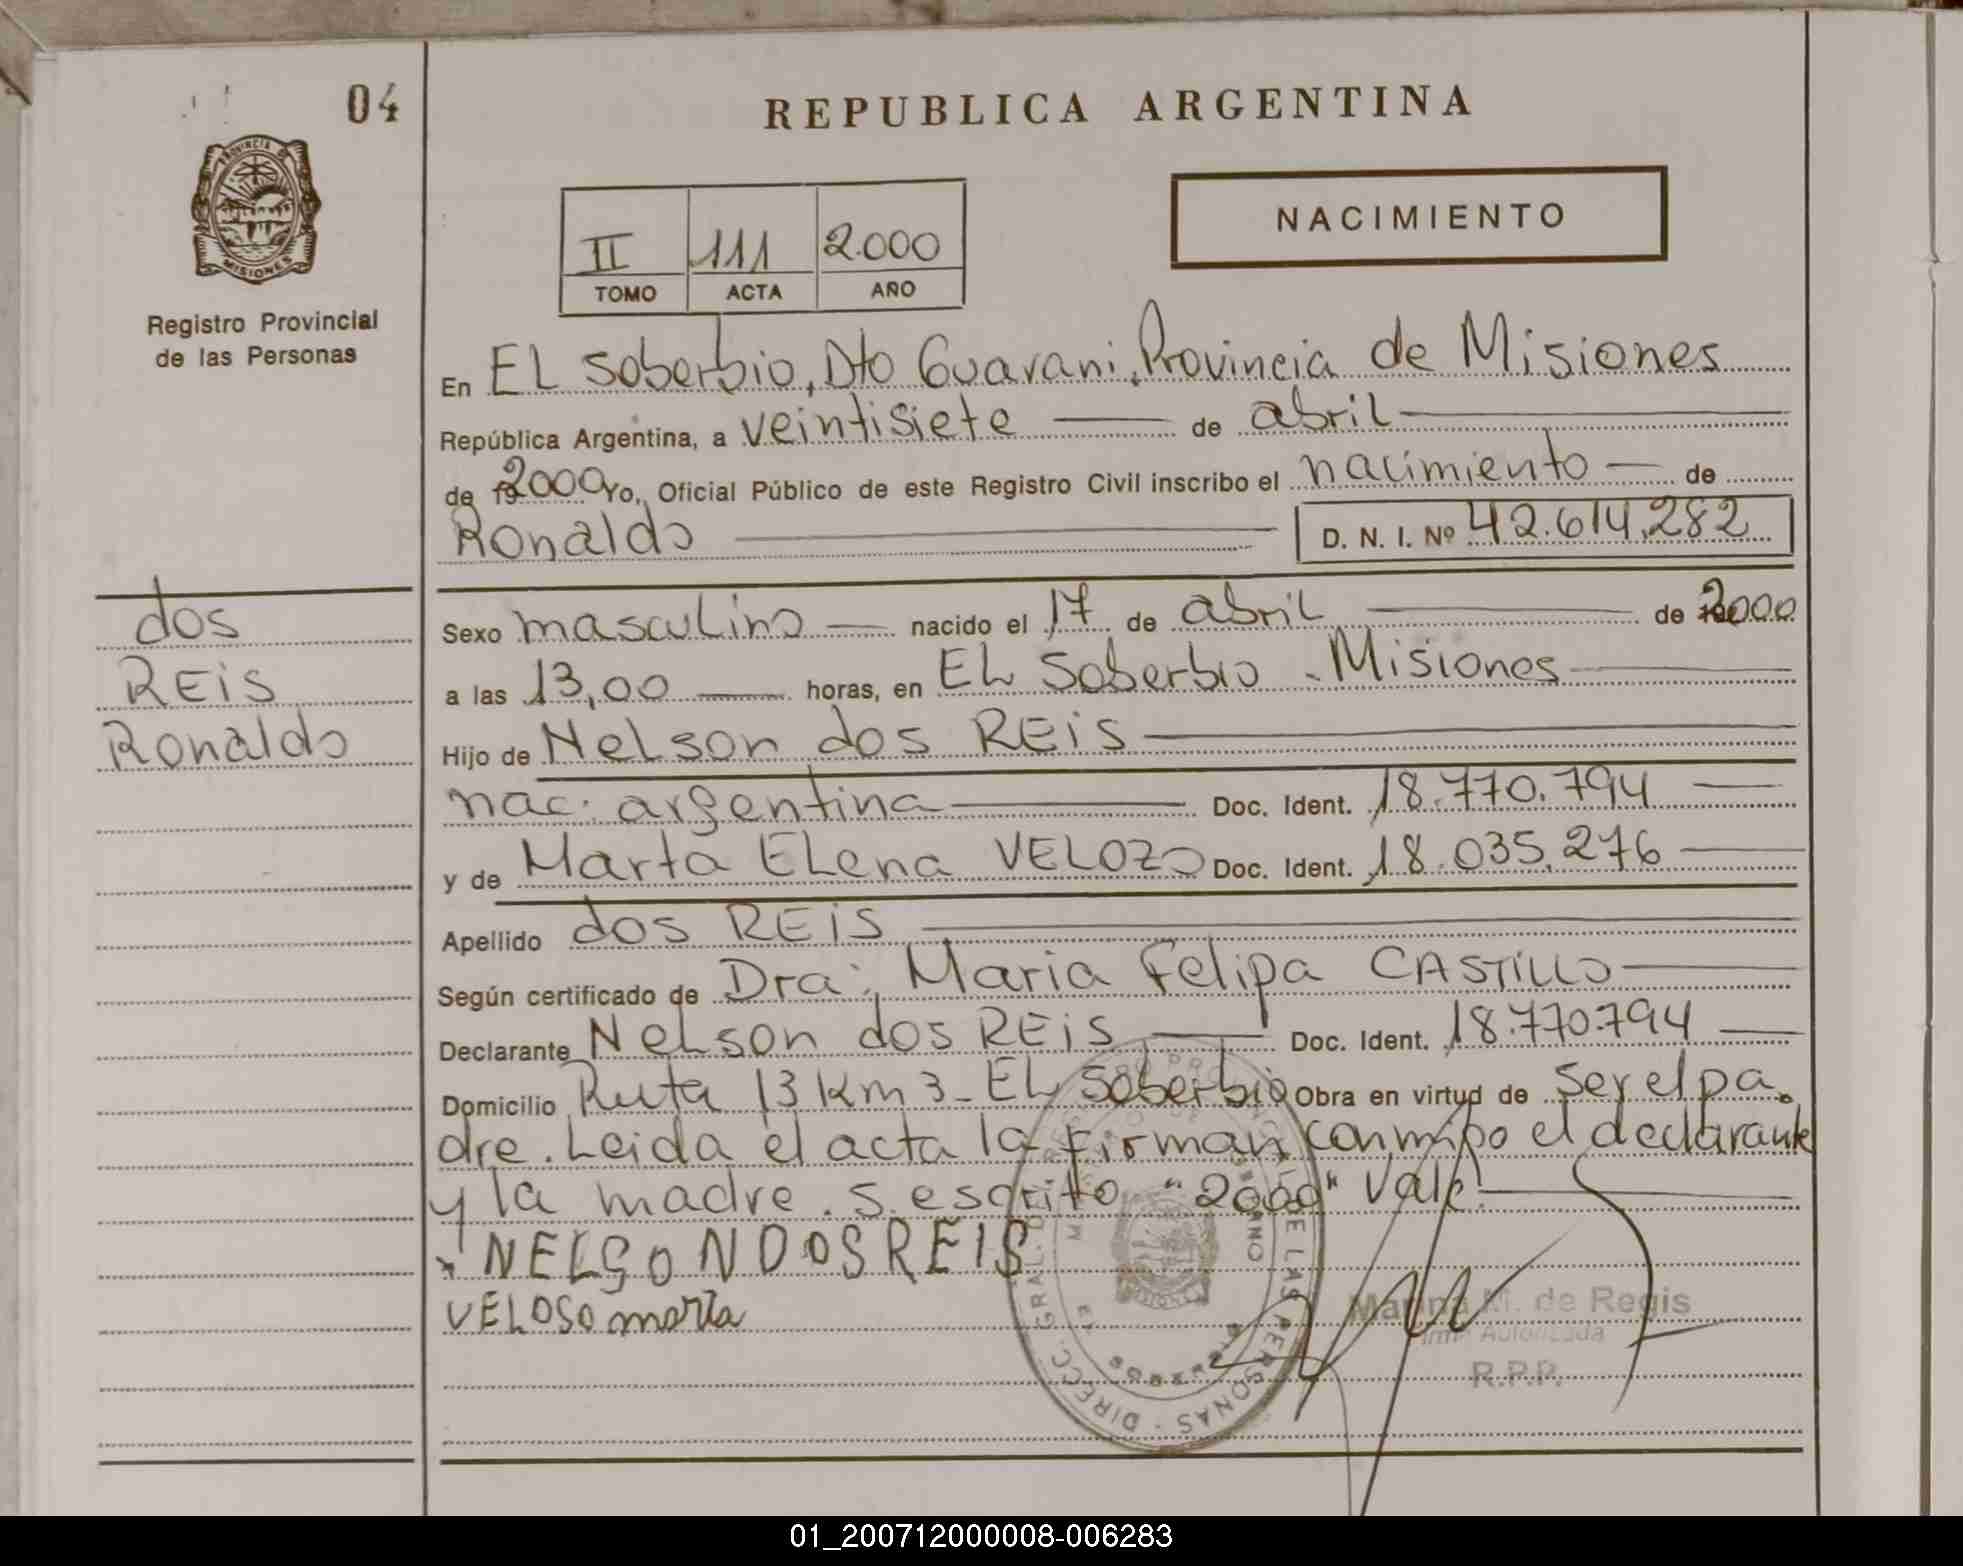 04
REPUBLICA ARGENTINA
PROVINCIA DE
MISIONES
Registro Provincial
de las Personas
II 111 2.000
TOMO ACTA AÑO
NACIMIENTO
En EL Soberbio, Dto Guarani. Provincia de Misiones
República Argentina, a veintisiete de abril
de 2000 Yo, Oficial Público de este Registro Civil inscribo el nacimiento de
Ronaldo D. N. I. Nº 42.614.282
dos
REiS
Ronaldo
Sexo masculino nacido el 17 de abril de 2000
a las 13,00 horas, en EL Soberbio - Misiones
Hijo de Nelson dos REiS
nac. argentina Doc. Ident. 18.770.794
y de Marta ELena VELOZO Doc. Ident. 18.035.276
Apellido dos REiS
Según certificado de Dra: Maria Felipa CASTiLLO
Declarante Nelson dos REiS Doc. Ident. 18.770.794
Domicilio Ruta 13 Km 3 - EL Soberbio Obra en virtud de ser el pa
dre. Leida el acta la firman conmigo el declarante
y la madre. S. escrito "2000" Vale.
NELSON DOS REIS
VELOSO marta
Marina M. de Regis
Autorizada
R.P.P.
DIRECC. GRAL. DEL REGISTRO PROVINCIAL DE LAS PERSONAS
01_200712000008-006283